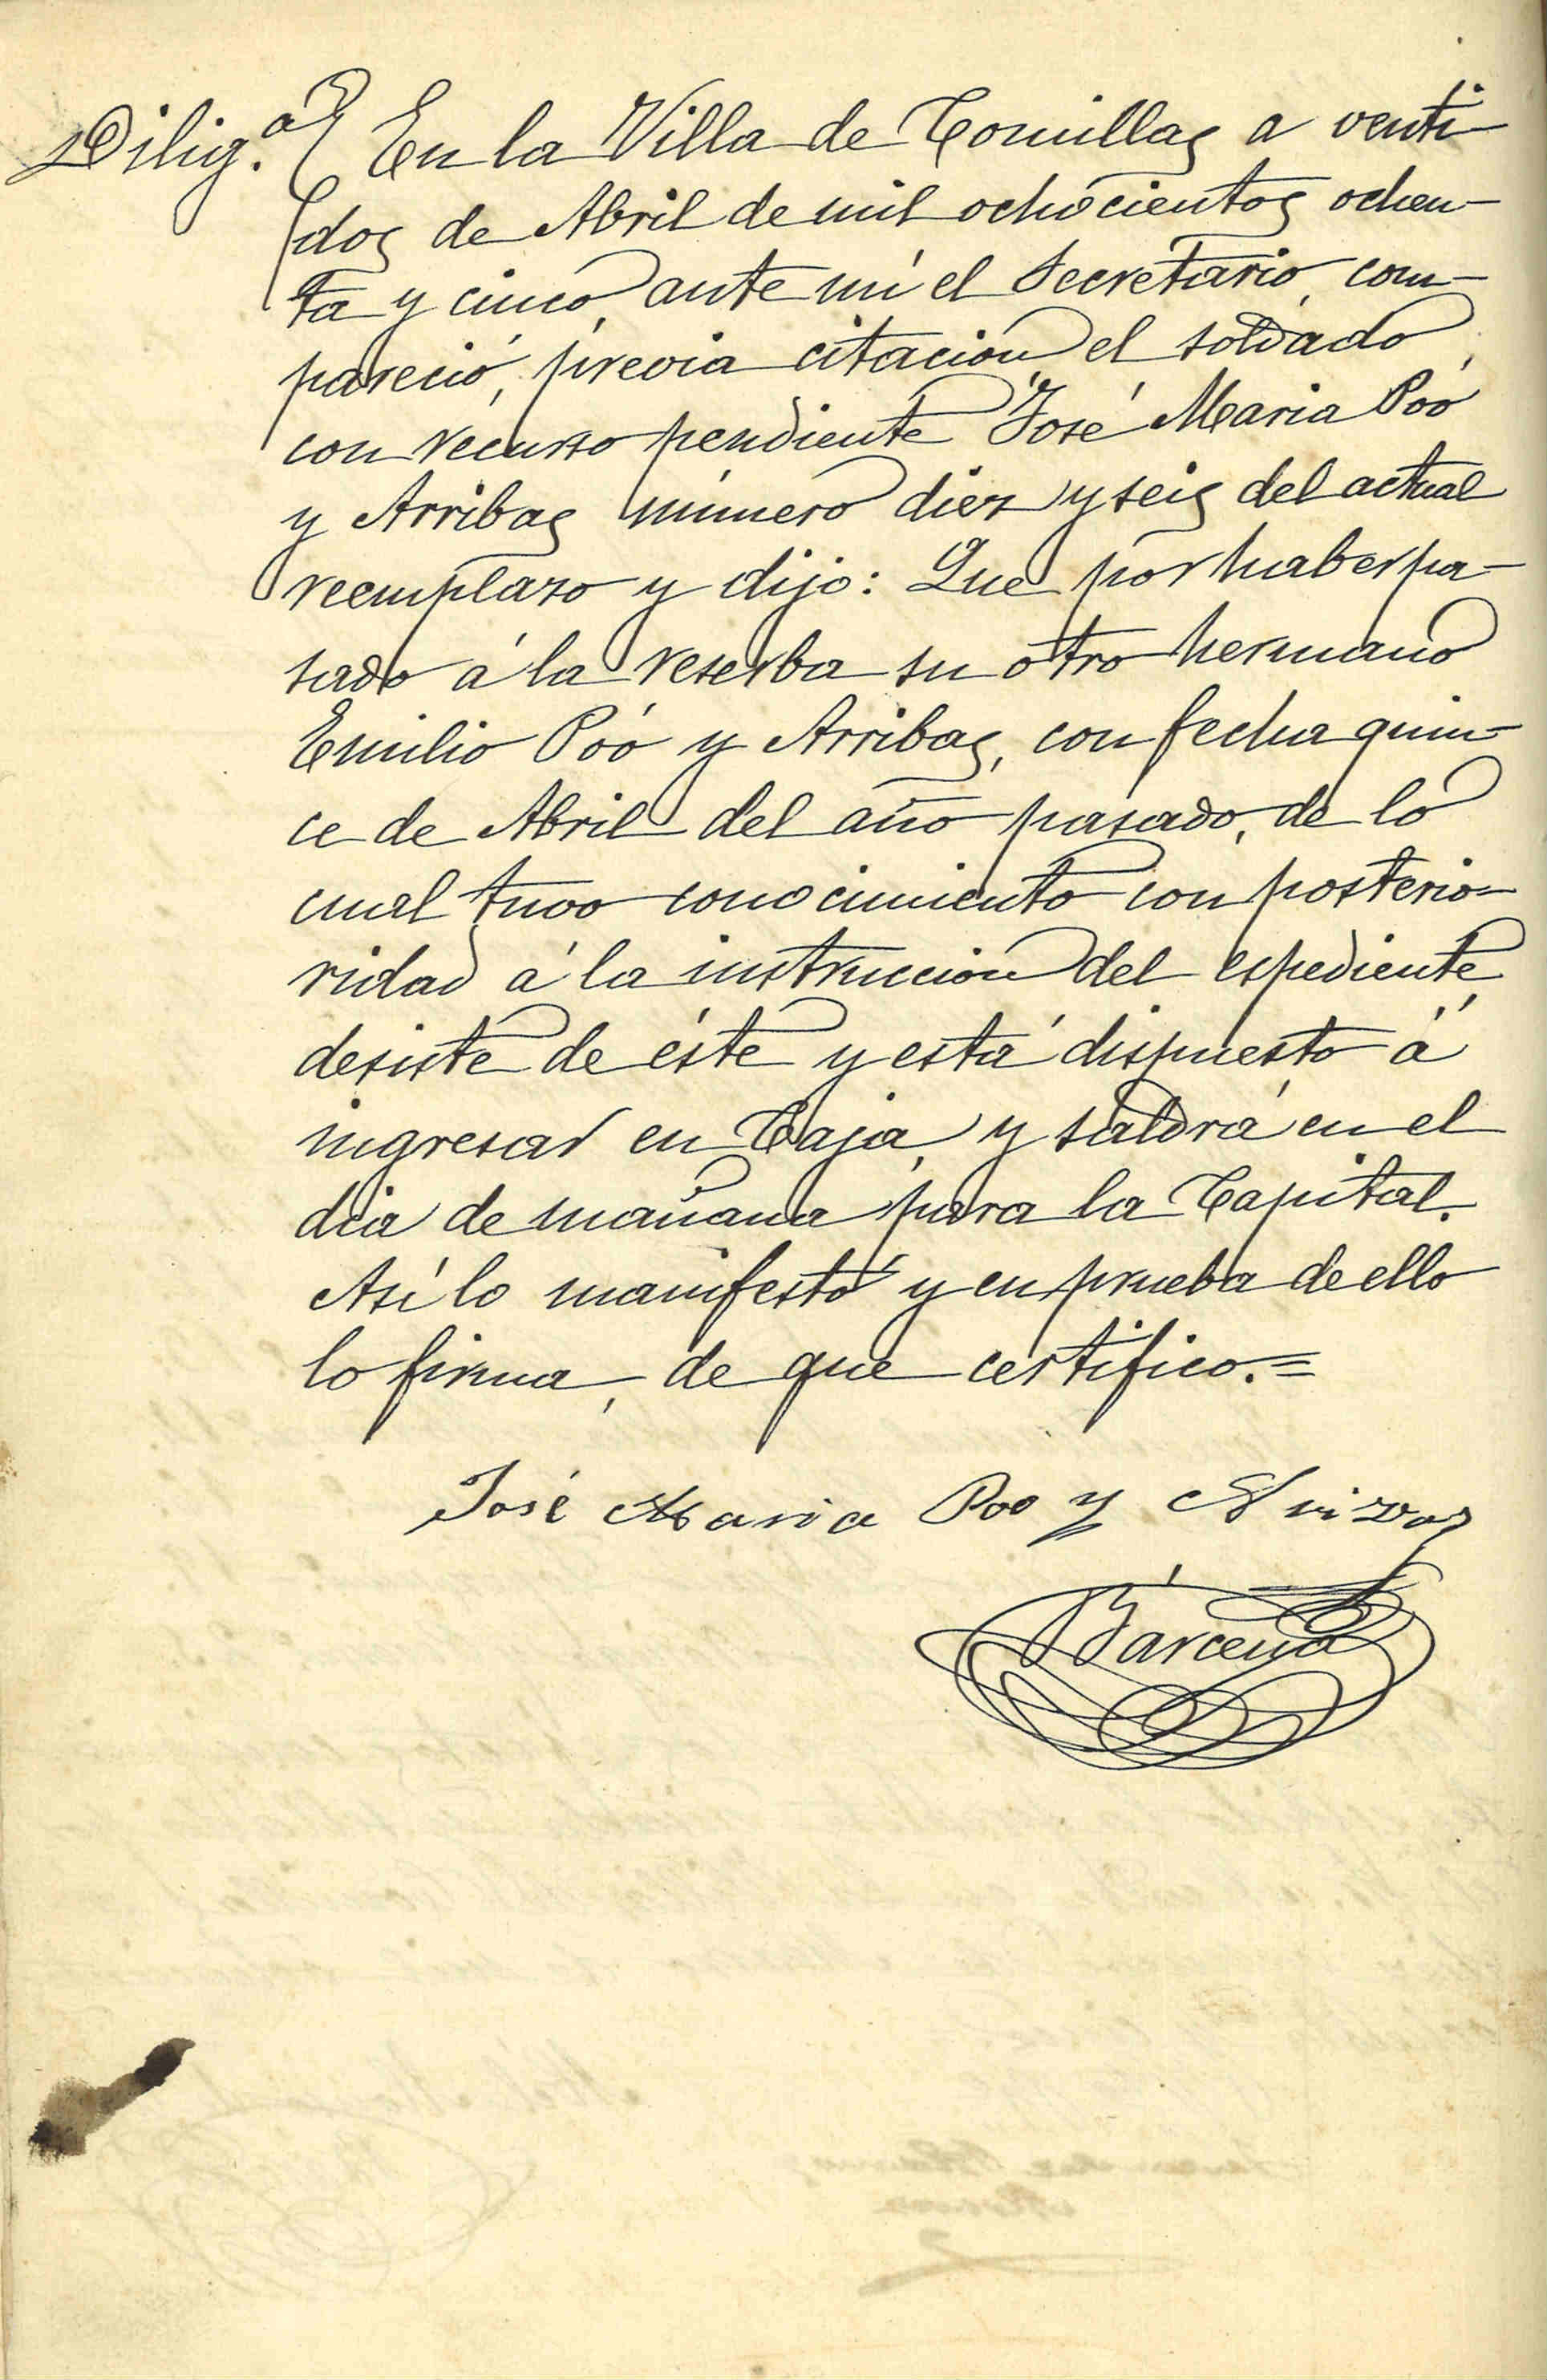 Dilig.ª En la Villa de Comillas a venti
dos de Abril de mil ochocientos ochen-
ta y cinco, ante mí el Secretario, com-
pareció, previa citación el soldado,
con recurso pendiente José Maria Póo
y Arribas número diez y seis del actual
reemplazo y dijo: Que por haber pa-
sado á la reserba su otro hermano
Emilio Póo y Arribas, con fecha quin-
ce de Abril del año pasado, de lo
cual tuvo conocimiento con posterio-
ridad á la instruccion del espediente,
desiste de éste y está dispuesto á
ingresar en Caja, y saldrá en el
dia de mañana para la Capital.
Así lo manifestó y en prueba de ello
lo firma, de que certifico.=
José Maria Poo y
Bárcena